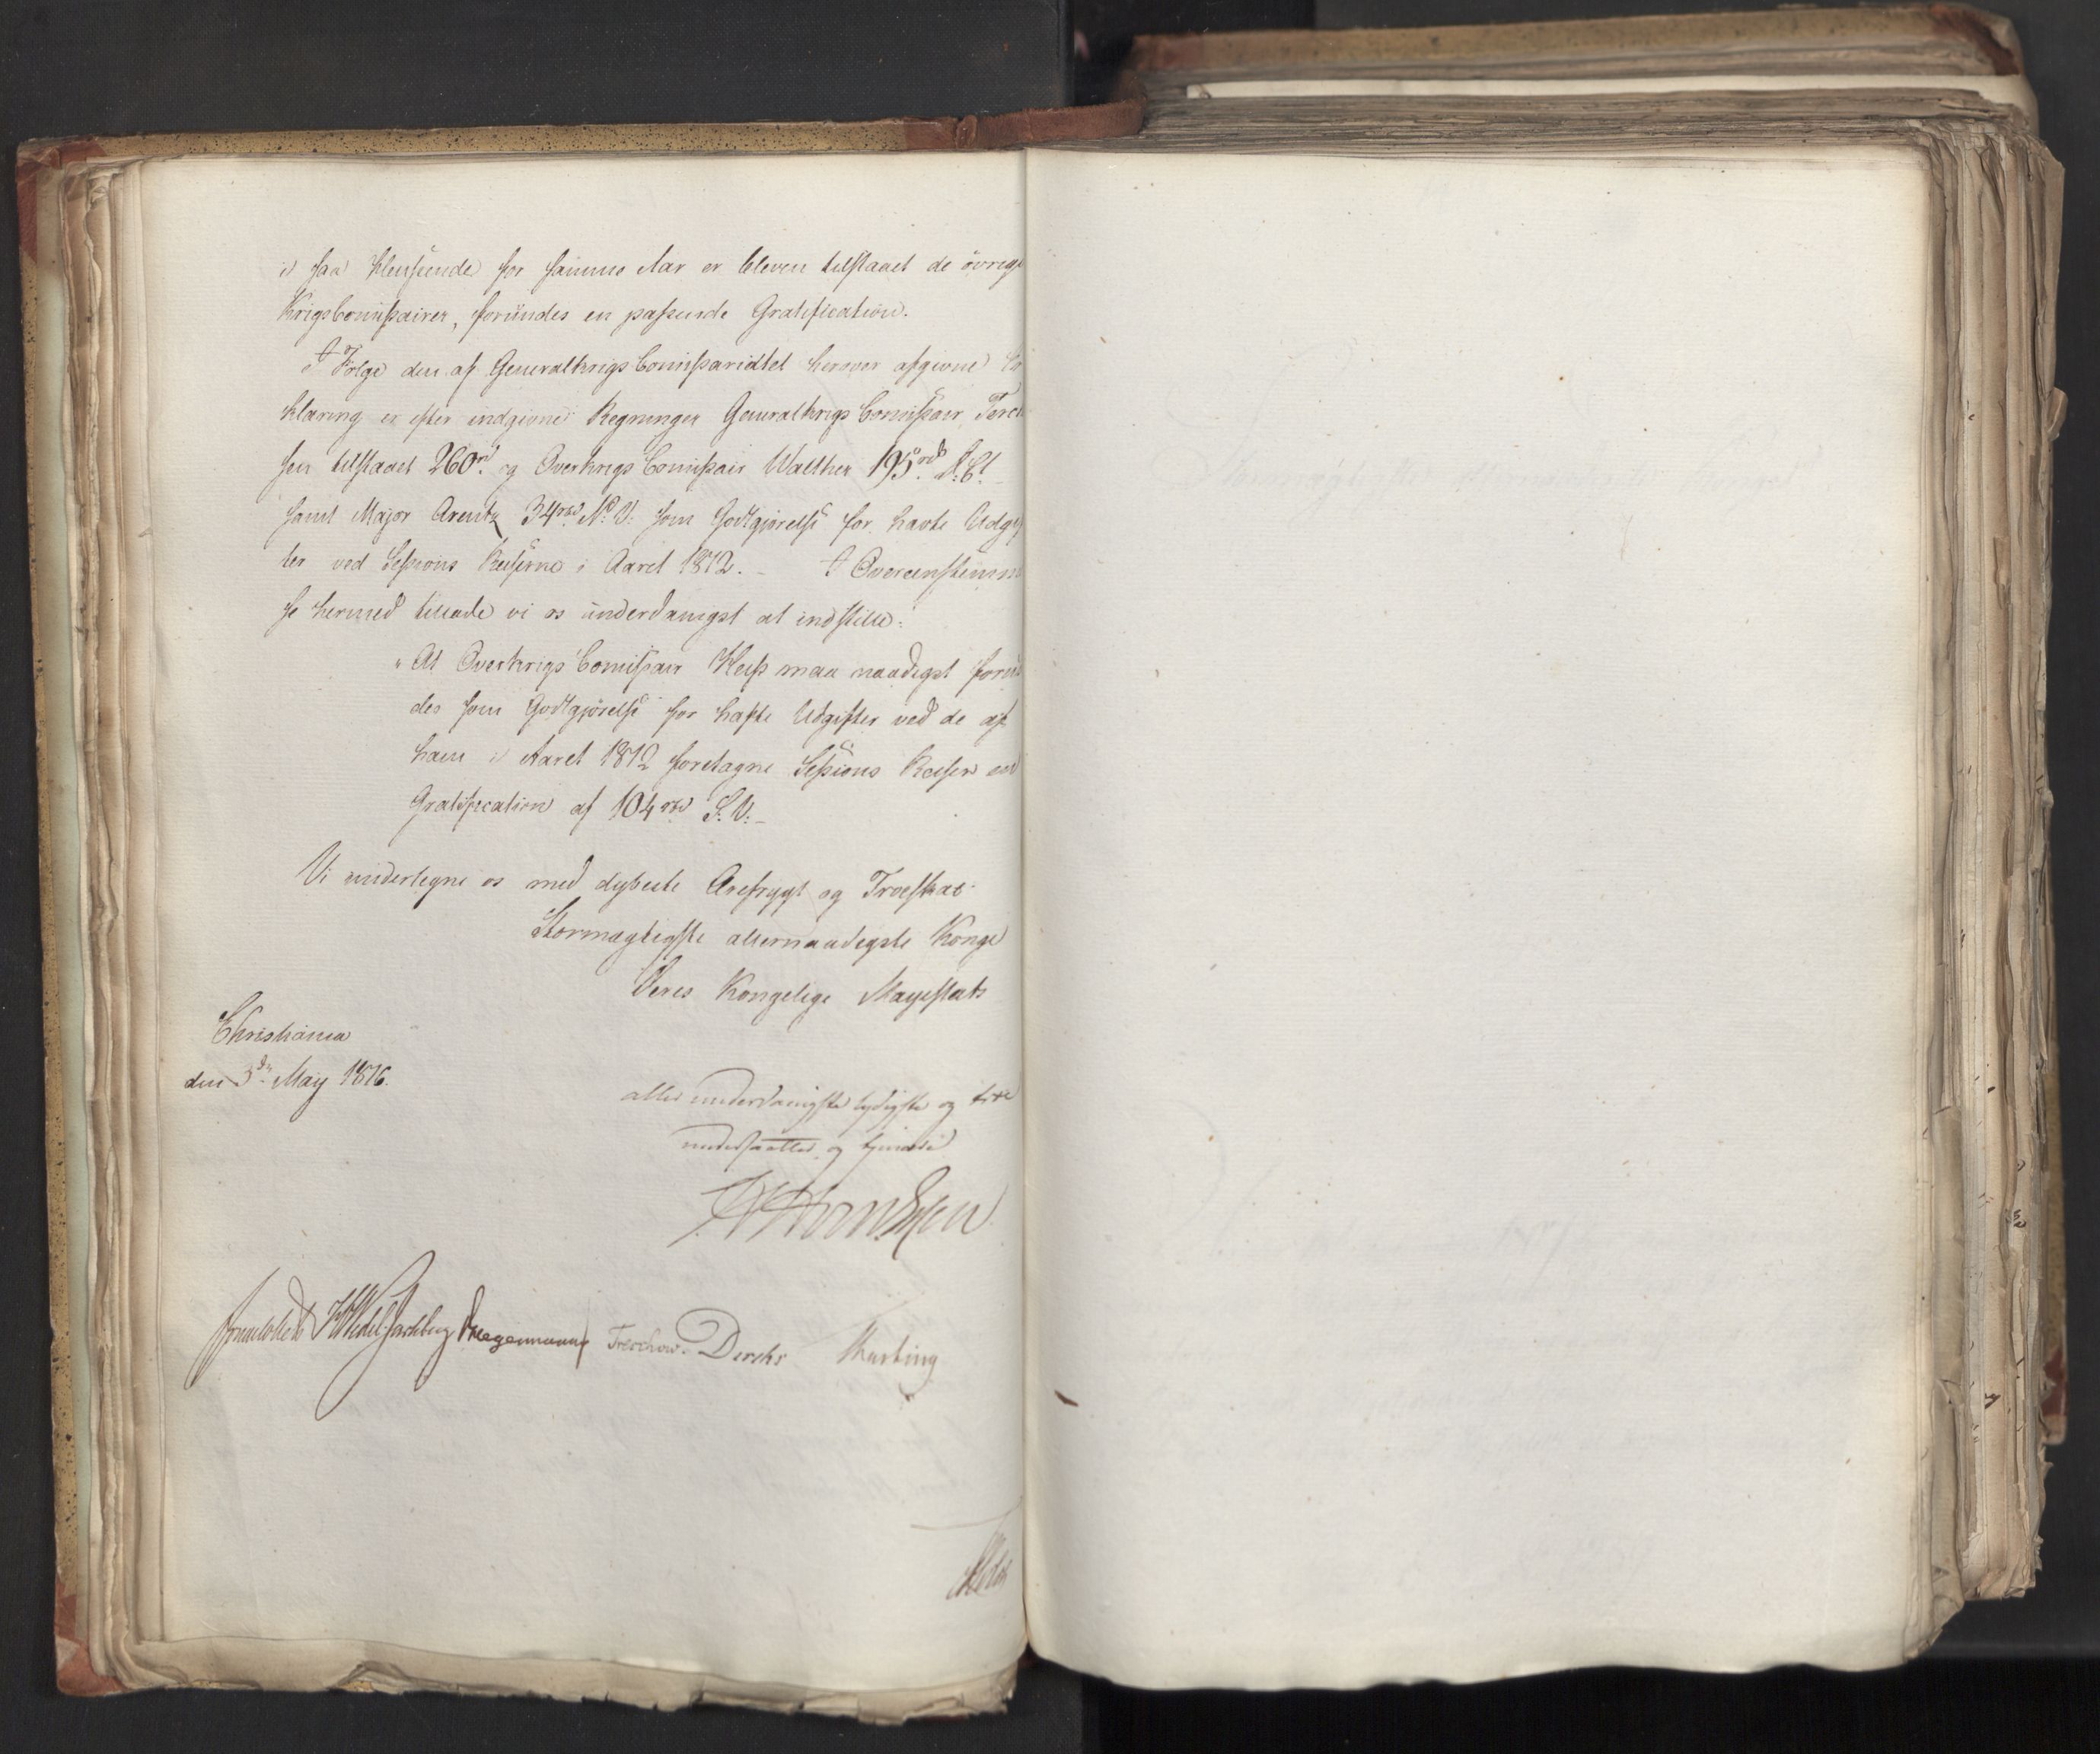 i saa Henseende for samme Aar er bleven tilstaaet de övrige
Krigscommissairer, forundes en passende Gratification.
I Følge den af Generalkrigs Commissariatet herover afgivne
klæring er efter indgivne Regninger Generalkrigs Commissair
sen tilstaaet 260 rd. og Overkrigs Commissair Walther 195 rd.
samt Major Arentz 34 rbd N. V. som Godtgjørelse for havte Udgif
ter ved Sessions Reiserne i Aaret 1812. – I Overeensstemm
se hermed tillade vi os underdanigst at indstille:
"At Overkrigs Commissair Heiss maa naadigst forun
des som Godtgjörelse for hafte Udgifter ved de af
ham i Aaret 1812 foretagne Sessions Reiser en
Gratification af 104 rbd S. V. –
Vi undertegne os med dybeste Ærefrygt og Troeskab
Stormægtigste allernaadigste Konge
Deres Kongelige Mayestæts
Christiania
den 3de May 1816.
allerunderdanigste lydigste og troe
undersaatter og tjenere
Sommerhielm HWedel Jarlsberg Kragemann Treschow Diriks Hasting